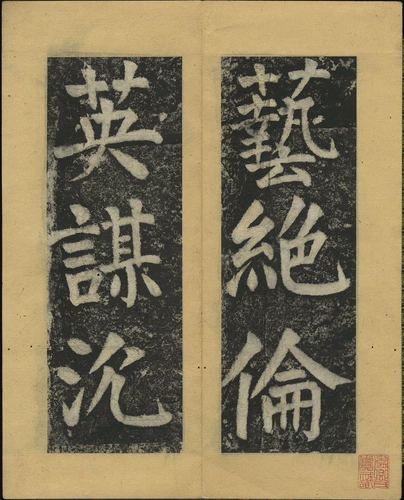 藝絕倫
英謀沉